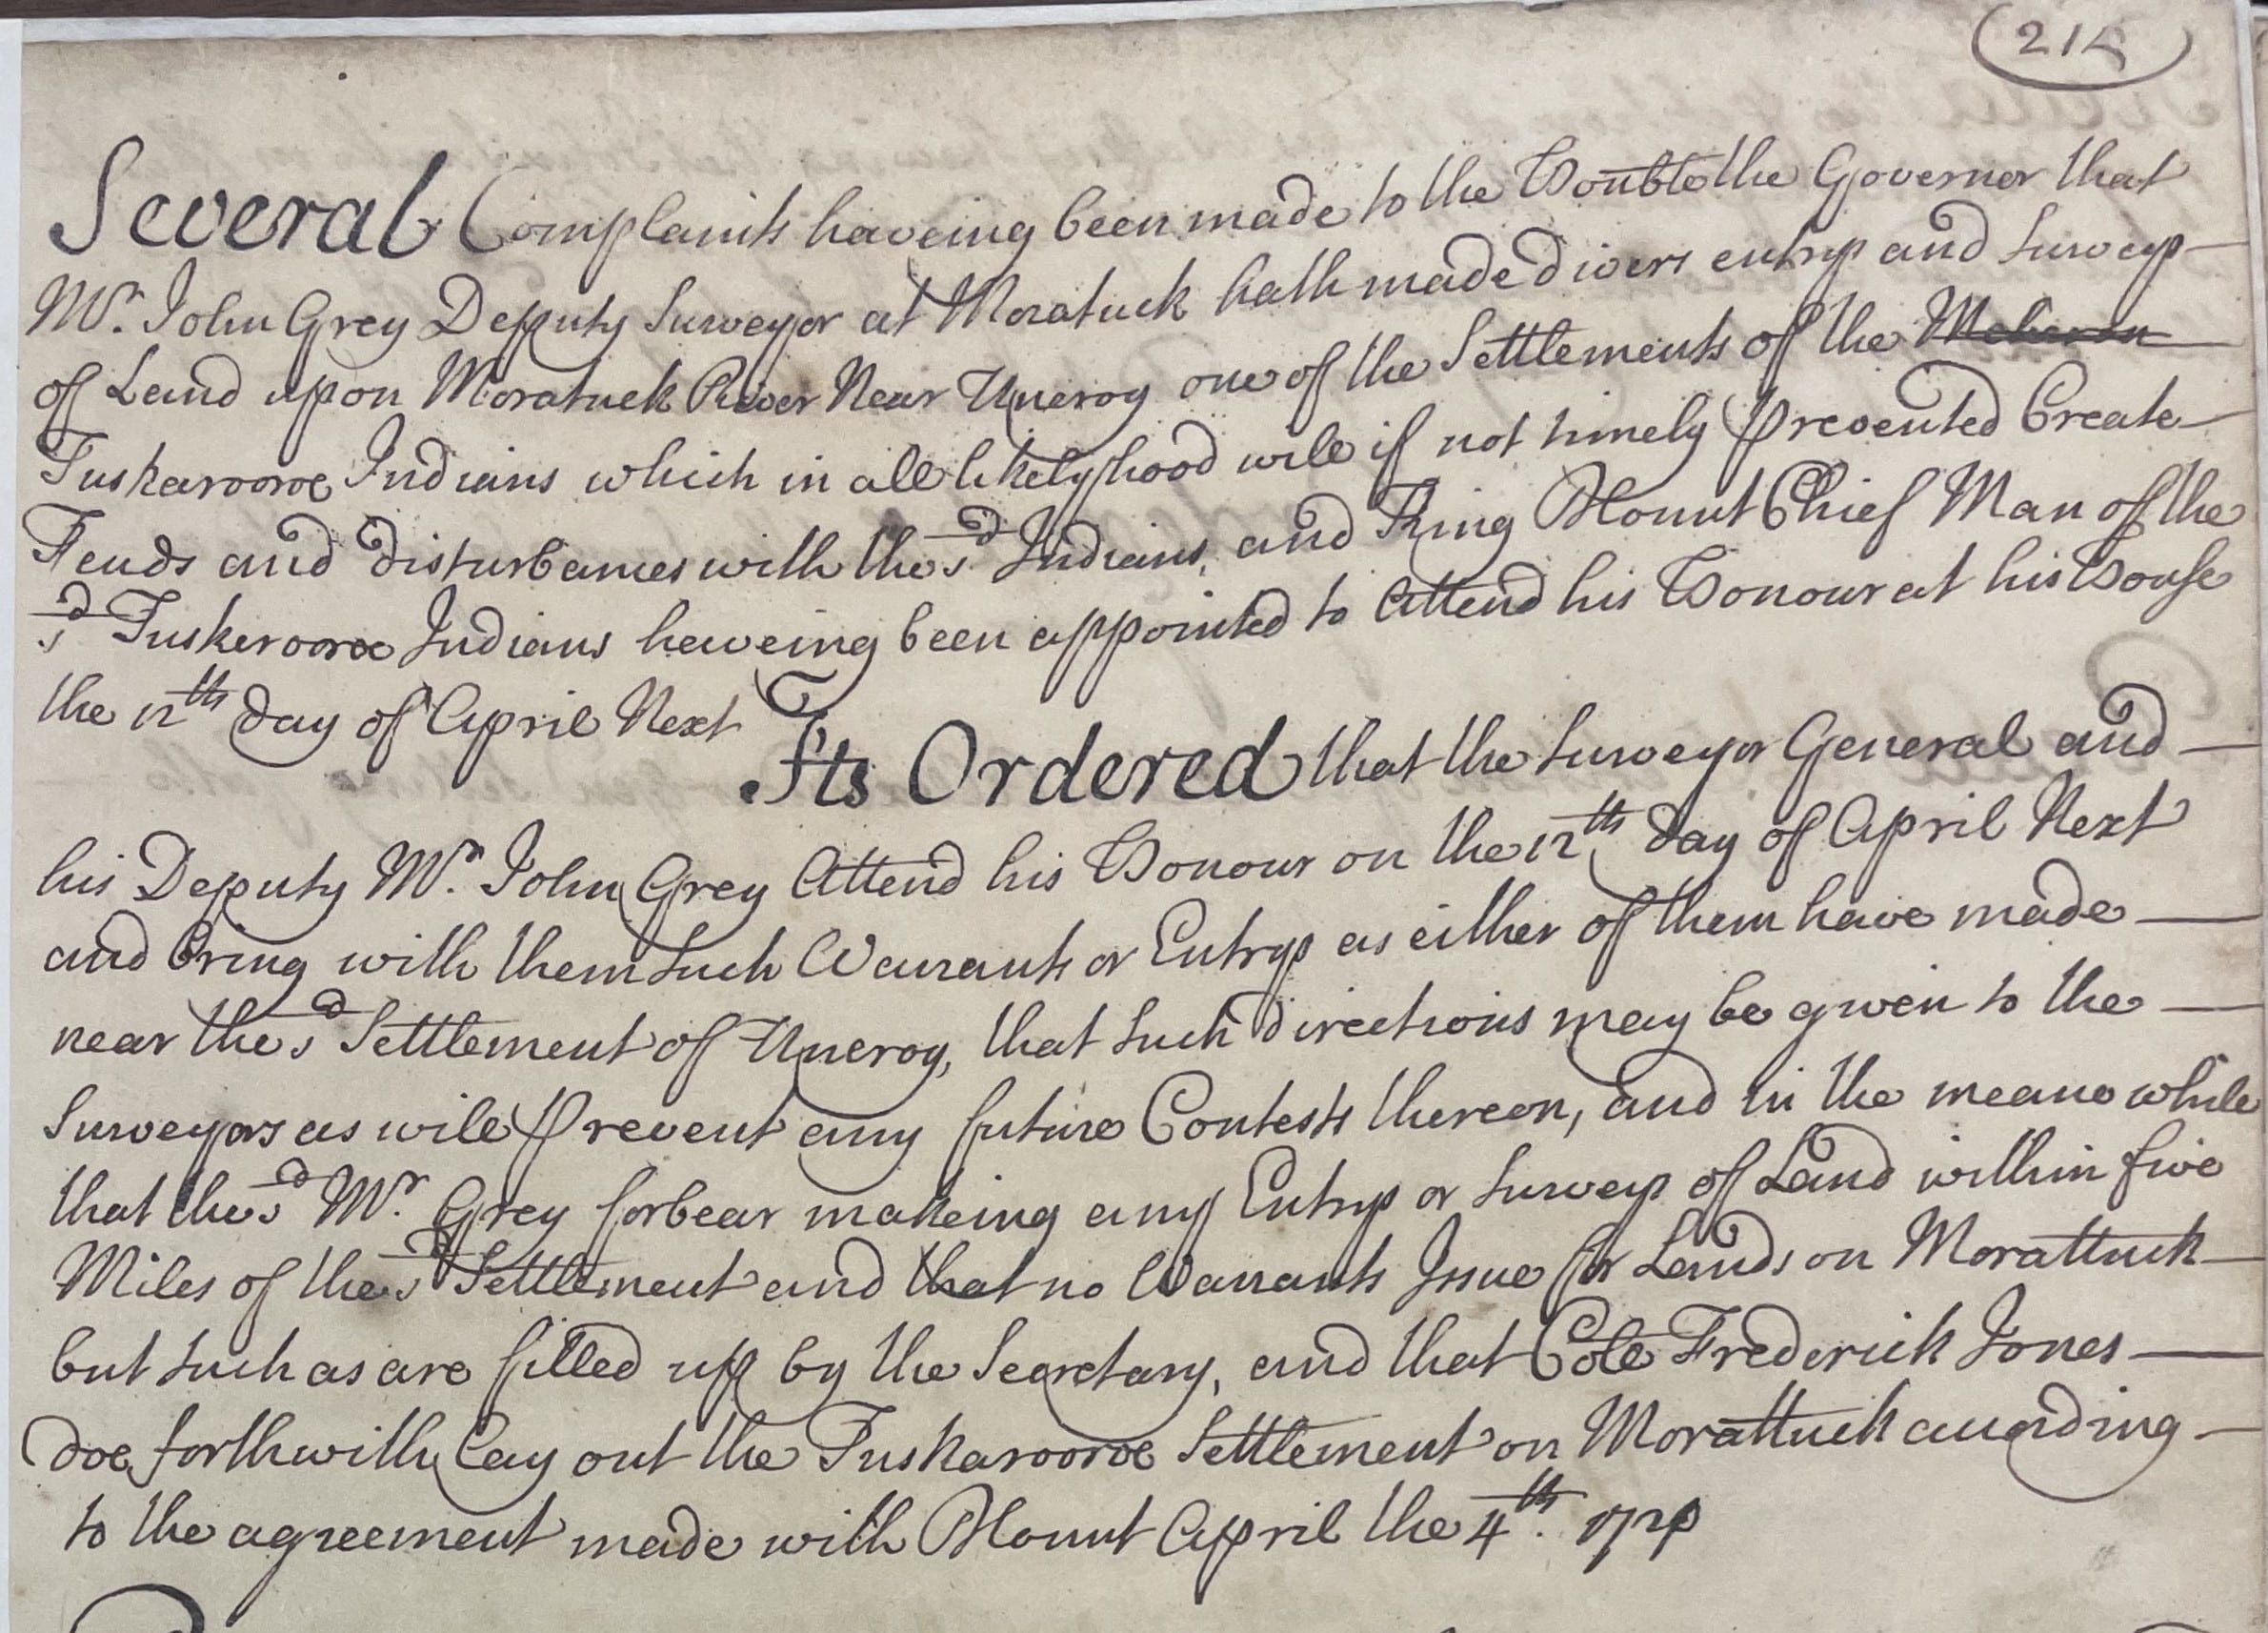 (214)
Several Complaints haveing been made to the Honoble the Governor that
Mr. John Grey Deputy Surveyor at Moratuck hath made divers entrys and Surveys
of Land upon Moratuck River Near Uneroy one of the Settlements of the Meheron
Tuskarooroe Indians which in all likelyhood will if not timely prevented Create
Feuds and disturbances with the sd Indians, and King Blount Chief Man of the
sd Tuskerooroe Indians haveing been appointed to attend his Honour at his House
the 12th day of April Next
Its Ordered that the Surveyor General and
his Deputy Mr. John Grey Attend his Honour on the 12th day of April Next
and bring with them Such Warrants or Entrys as either of them have made
near the sd Settlement of Uneroy, that Such directions may be given to the
Surveyors as will prevent any future Contests thereon, and in the meane while
that the sd Mr. Grey forbear makeing any Entrys or Surveys of Land within five
Miles of the sd Settlement and that no Warrants Issue for Lands on Morattuck
but such as are filled up by the Secretary, and that Colo Frederick Jones
doe forthwith lay out the Tuskarooroe Settlement on Morattuck according
to the agreement made with Blount April the 4th.